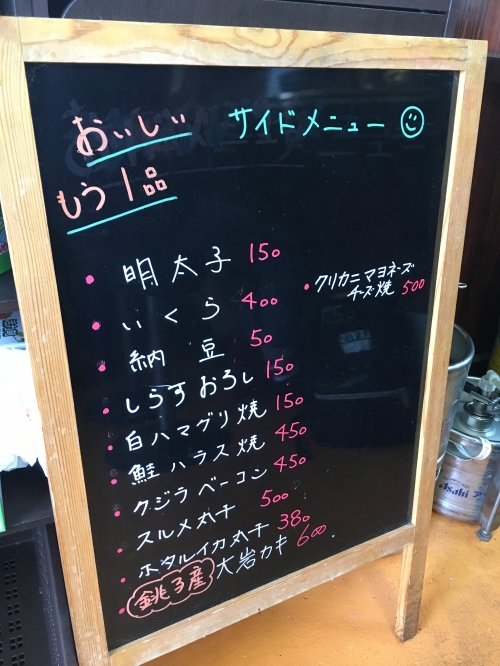 おいしい サイドメニュー
もう1品
・明太子 150
・いくら 400
・納豆 50
・しらすおろし 150
・白ハマグリ焼 150
・鮭ハラス焼 450
・クジラベーコン 450
・スルメ丸干 500
・ホタルイカ丸干 380
・銚子産 大岩カキ 600
・クリカニマヨネーズ
チーズ焼 500
Asahi